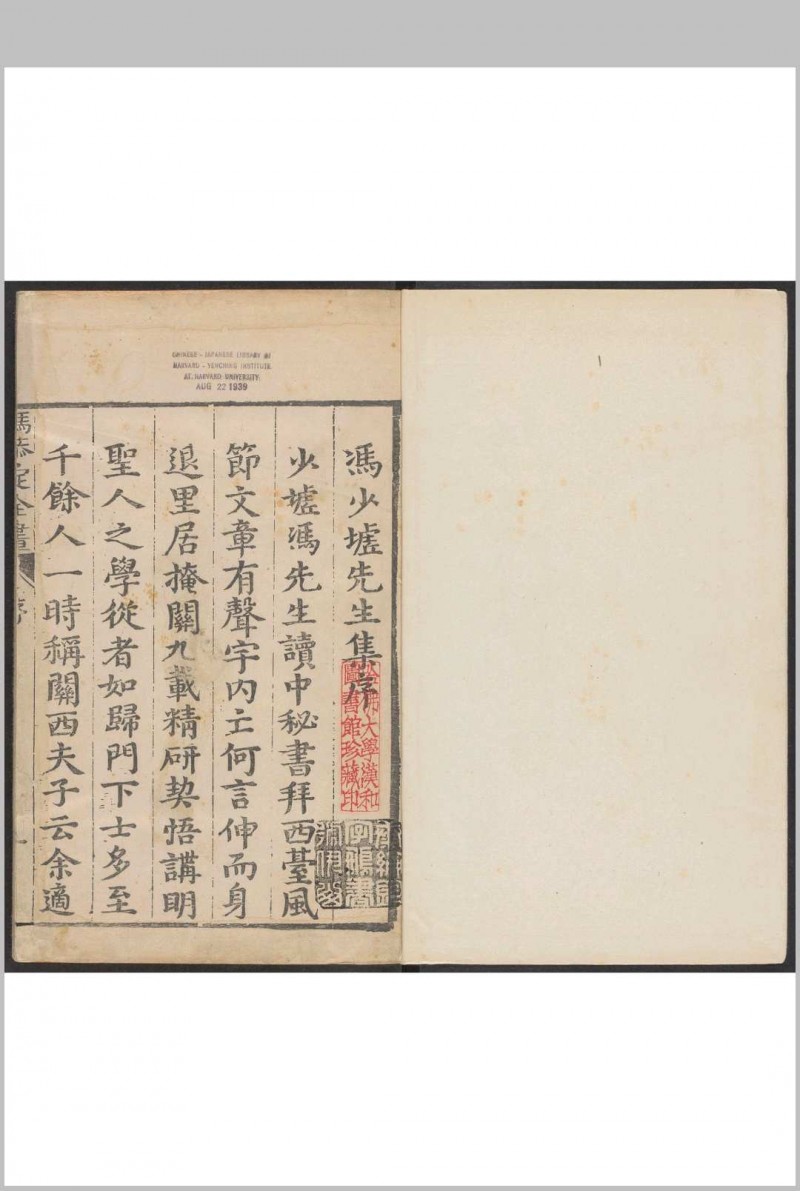 馮少墟先生集序
少墟馮先生讀中秘書拜西臺風
節文章有聲宇内亡何言伸而身
退里居掩關九載精研契悟講明
聖人之學從者如歸門下士多至
千餘人一時稱關西夫子云余適
馮恭定全書 序
哈佛大學漢和
圖書館珍藏印
CHINESE - JAPANESE LIBRARY OF
HARVARD - YENCHING INSTITUTE
AT HARVARD UNIVERSITY
AUG 22 1939